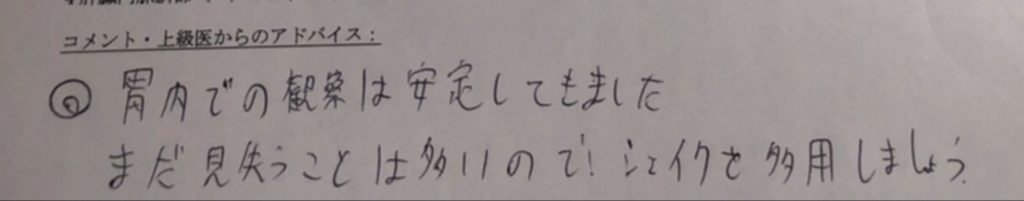 コメント・上級医からのアドバイス：
胃内での観察は安定してきました
まだ見失うことは多いので！シェイクを多用しましょう